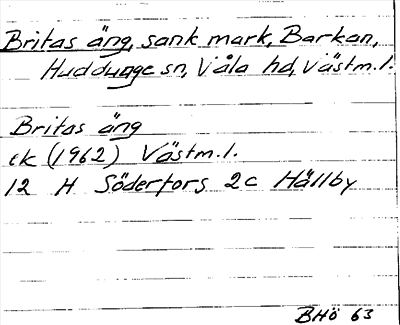 Britas äng, sank mark, Barkan,
Huddunge sn, Våla hd, Västm.l.
Britas äng
ek (1962) Västm.l.
12 H Söderfors 2c Hällby
BHö 63